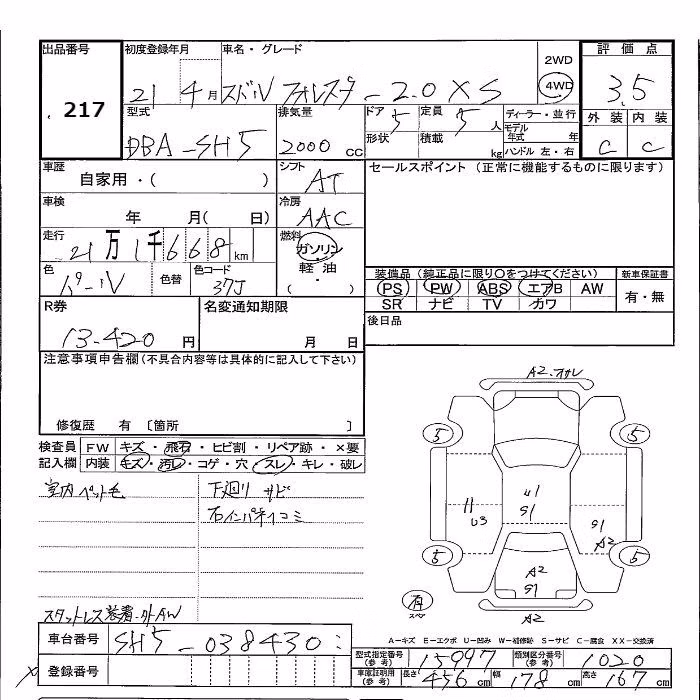 出品番号 初度登録年月 車名・グレード 2WD 評価点
217 21 4月 スバル フォレスター 2.0 XS 4WD 3.5
型式 排気量 ドア 定員 ディーラー・並行 外装 内装
DBA-SH5 2000cc 5 5人 モデル年式 年 C C
形状 積載 kg ハンドル 左・右
車歴 シフト セールスポイント (正常に機能するものに限ります)
自家用・( ) AT
車検 冷房
年 月( 日) AAC
走行 燃料
21万1千668km ガソリン・
色 色替 色コード 軽油 装備品 (純正品に限り○をつけてください) 新車保証書
パール 37J ( ・ ) PS PW ABS エアB AW 有・無
SR ナビ TV カワ
R券 名変通知期限 後日品
13-420円 月 日
注意事項申告欄(不具合内容等は具体的に記入して下さい)
修復歴 有 〔箇所 〕
検査員 FW キズ・飛石・ヒビ割・リペア跡・×要
記入欄 内装 キズ・汚レ・コゲ・穴・スレ・キレ・破レ
室内ペット毛 下廻りサビ
石インパネイコミ
スタットレス装着・外AW
A2.オサレ
5 5
U1
S1
U3
S1
A2
5 5
A2
S1
A2
スペア
A-キズ E-エクボ U-凹み W-補修跡 S-サビ C-腐食 XX-交換済
車台番号 SH5-038430:
登録番号
型式指定番号(参考) 15997 類別区分番号(参考) 1020
車庫証明用(参考) 長さ 456cm 幅 178cm 高さ 167cm